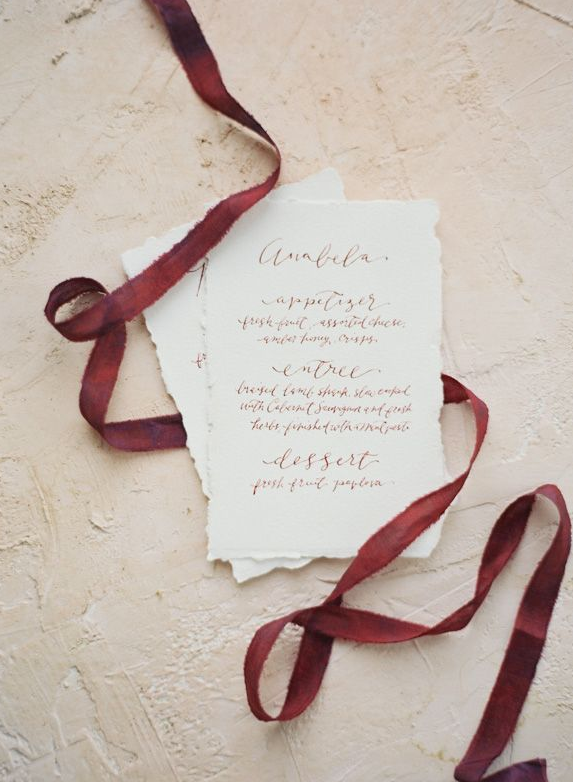 Anabela
appetizer
fresh fruit, assorted cheese,
amber honey, crisps.
entree
braised lamb shank, slow cooked
with Cabernet Sauvignon and fresh
herbs - finished with
dessert
fresh fruit pavlova